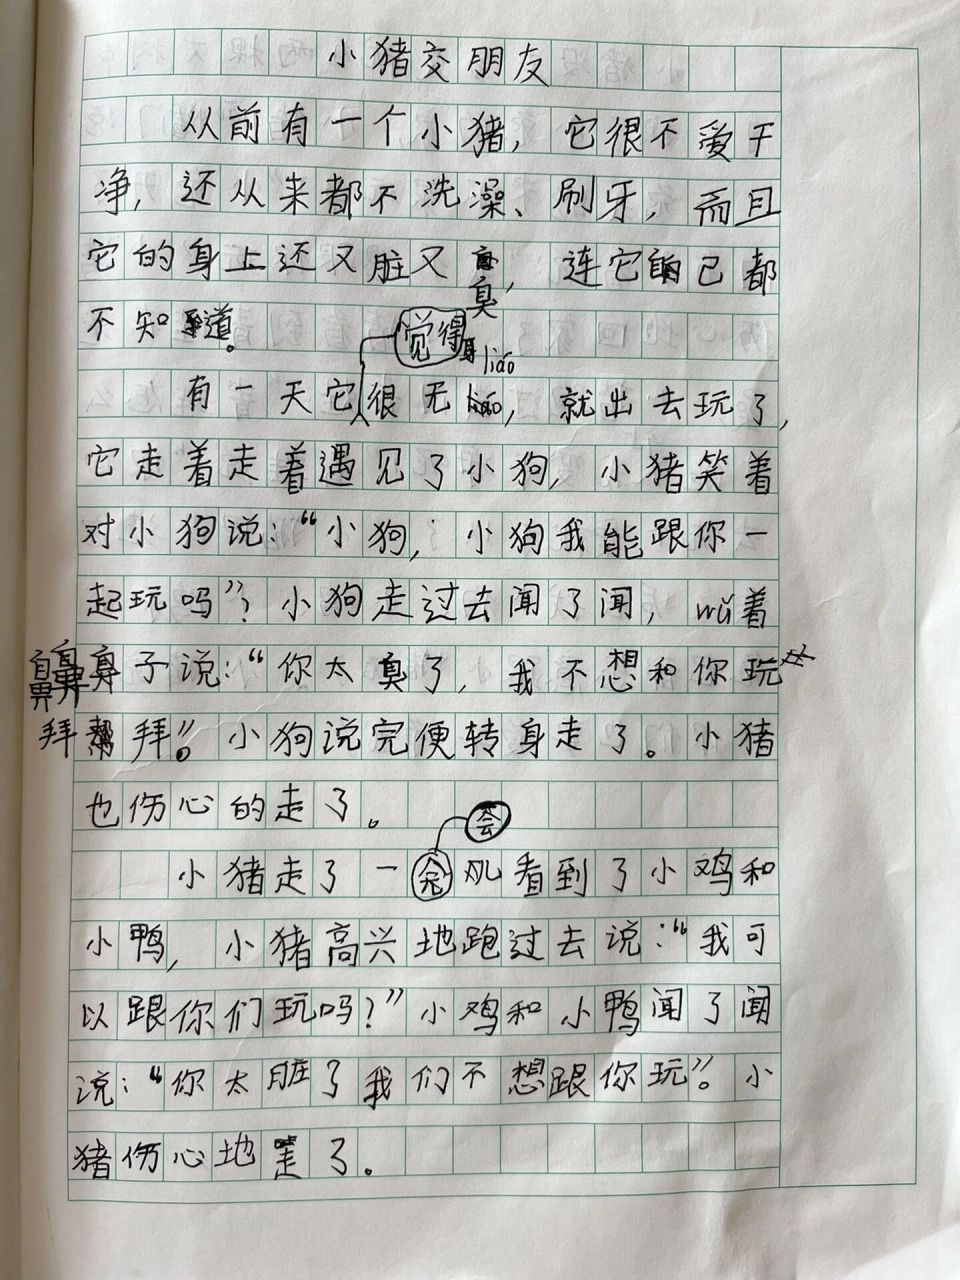 小猪交朋友
从前有一个小猪，它很不爱干
净，还从来都不洗澡、刷牙，而且
它的身上还又脏又臭，连它自己都
不知道。
有一天它觉得很无liáo，就出去玩了，
它走着走着遇见了小狗，小猪笑着
对小狗说：“小狗，小狗我能跟你一
起玩吗”？小狗走过去闻了闻，wǔ着
鼻子说：“你太臭了，我不想和你玩
拜拜”。小狗说完便转身走了。小猪
也伤心的走了。
小猪走了一会儿看到了小鸡和
小鸭，小猪高兴地跑过去说：“我可
以跟你们玩吗？”小鸡和小鸭闻了闻
说：“你太脏了我们不想跟你玩”。小
猪伤心地走了。